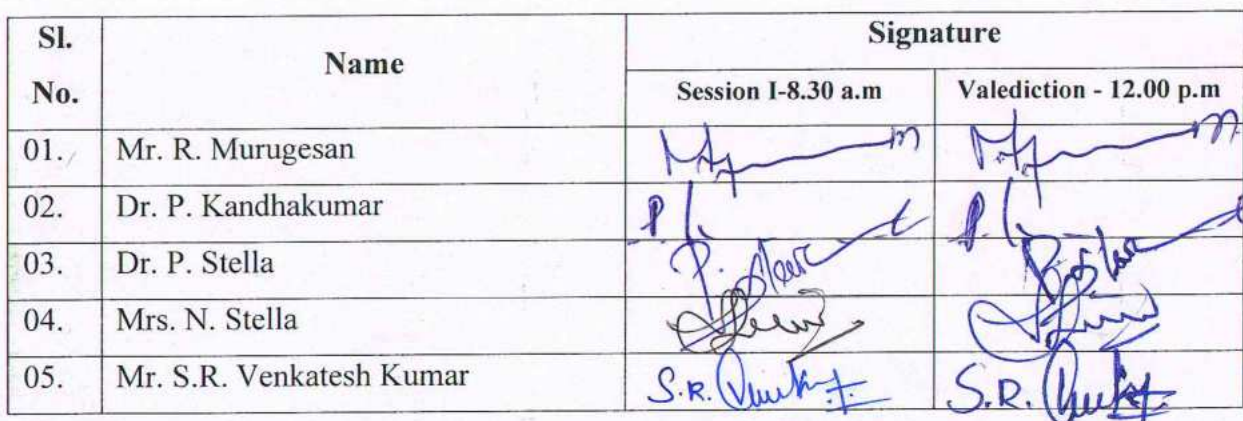 Sl. No. Name Signature
Session I-8.30 a.m Valediction - 12.00 p.m
01. Mr. R. Murugesan
02. Dr. P. Kandhakumar P.
03. Dr. P. Stella P. Stella
04. Mrs. N. Stella
05. Mr. S.R. Venkatesh Kumar S.R. S.R.